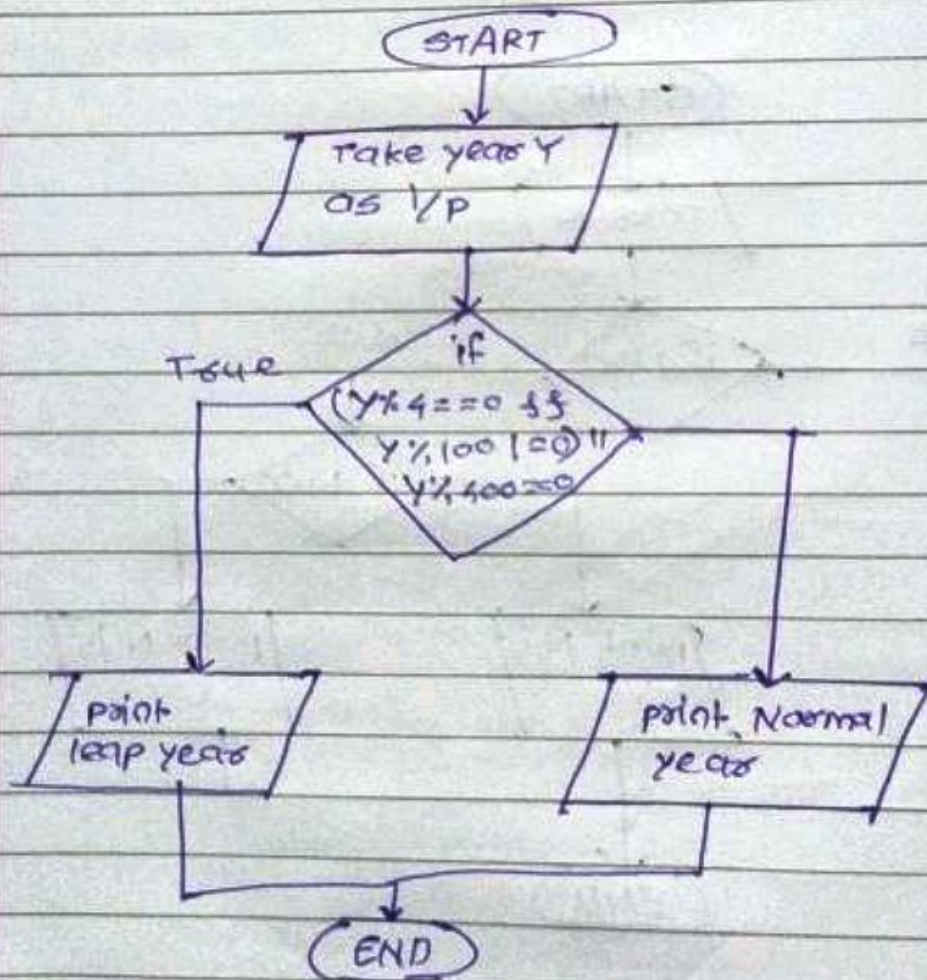 START
Take year Y
as I/P
if
True
(Y%4==0 &&
Y%100!=0)||
Y%400==0
print
leap year
print Normal
year
END